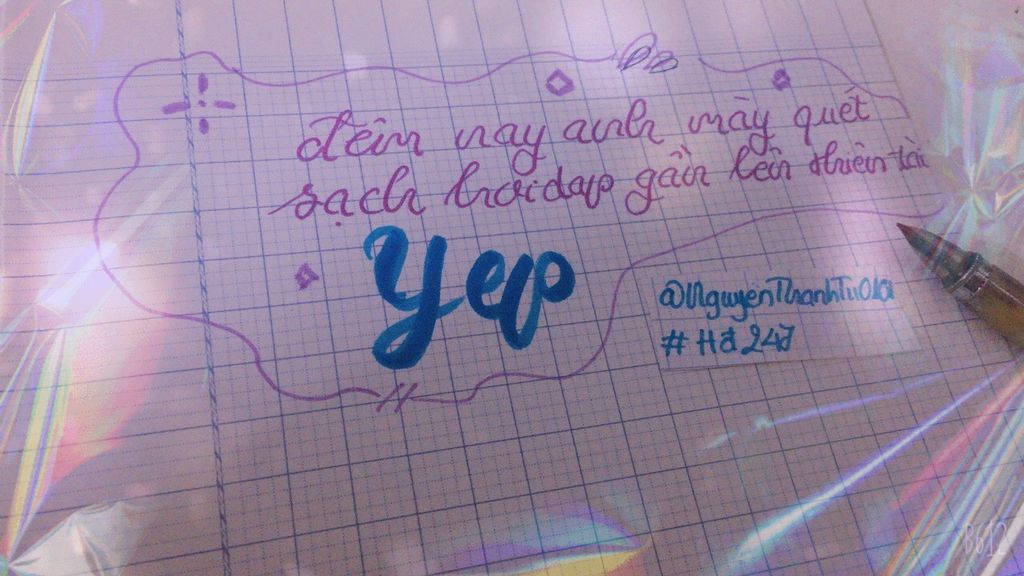 đêm nay anh mày quét
sạch hoidap gần lên thiên tài
Yep
@NguyenThanhTu
#Hđ247
B612